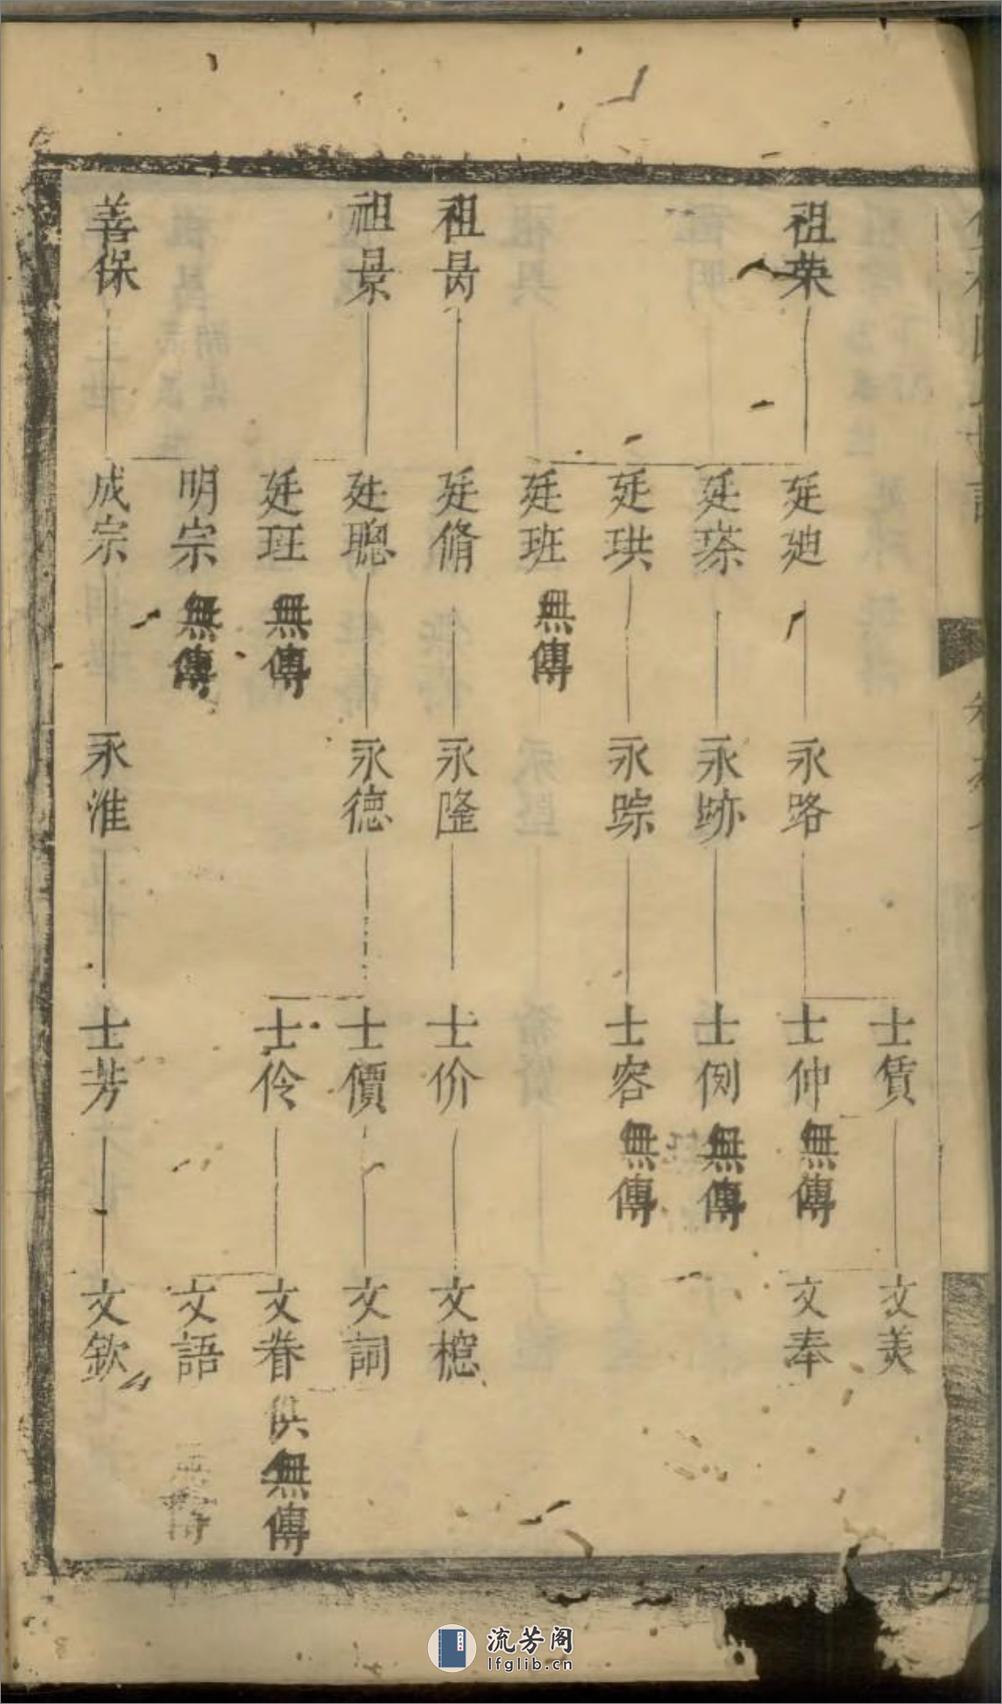 祖荣
祖昺
祖景
善保
廷廸
廷瑹
廷珙
廷班 無傳
廷脩
廷聰
廷玨 無傳
明宗 無傳
成宗
永路
永跡
永踪
永隆
永德
永淮
士賃
士仲 無傳
士側 無傳
士容 無傳
士价
士價
士伶
士芳
文美
文奉
文樬
文詞
文眷 俱無傳
文語
文欽
流芳阁
lfglib.cn